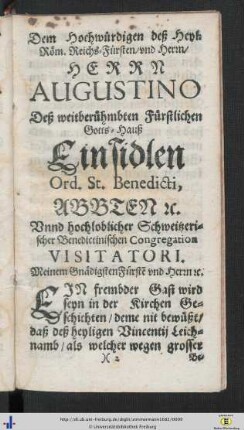 Dem Hochwürdigen deß Heyl.
Röm. Reichs-Fürsten/vnd Herrn/
HERRN
AUGUSTINO
Deß weitberühmbten Fürstlichen
Gotts-Hauß
Einsidlen
Ord. St. Benedicti,
ABBTEN ꝛc.
Vnnd hochloblicher Schweitzeri-
scher Benedictinischen Congregation
VISITATORI.
Meinem Gnädigsten Fürstē vnd Herrn ꝛc.
EIN frembder Gast wird
seyn in der Kirchen Ge-
schichten/ deme nit bewüßt/
daß deß heyligen Vincentij Leich-
namb/ als welcher wegen grosser
)( 2 Be-
© Universitätsbibliothek Freiburg